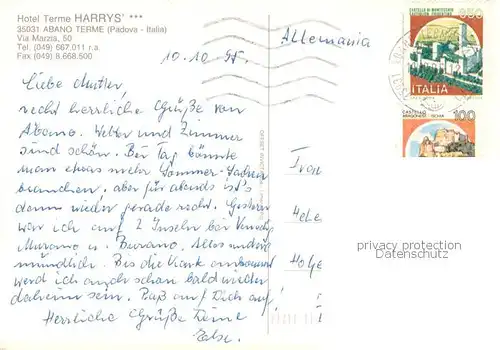 Hotel Terme HARRYS' ***
35031 ABANO TERME (Padova - Italia)
Via Marzia, 50
Tel. (049) 667.011 r.a.
Fax (049) 8.668.500
10.10.95.
Allemania
CASTELLO DI MONTECCHIO
850
ITALIA
CASTELLO
ARAGONESE - ISCHIA
100
Liebe Mutter,
recht herrliche Grüße von
Abano. Wetter und Zimmer
sind schön. Bei Tag könnte
man etwas mehr Sommer-Sachen
brauchen, aber für abends ist's
dann wieder gerade recht. Gestern
war ich auf 2 Inseln bei Venedig
Murano u. Burano. Alles andere
mündlich. Bis die Karte ankommt
werd ich auch schon bald wieder
daheim sein. Paß auf Dich auf!
Herrliche Grüße Deine
Frau
Hele
Holge
privacy protection
Datenschutz